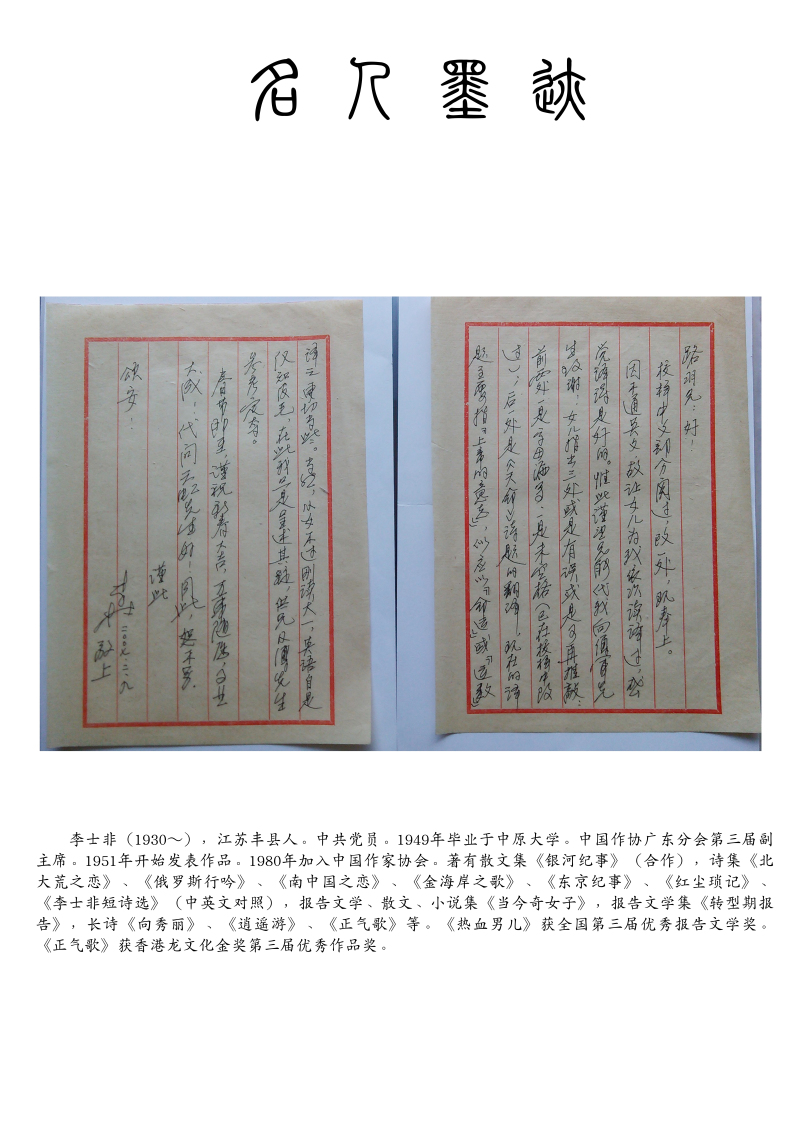 名人墨迹
路羽兄：好！
校样中文部分阅过，改一处，现奉上。
因不通英文，故让女儿为我依次读译过，我
觉译得是好的。惟此谨望兄能代我向
生致谢！女儿指出三处或是有误或是可再推敲：
前两处一是字母漏了，一是未空格（已在校样中改
过），后一处是《天命》诗题的翻译，现在的译
题主要指“上帝的意志”，似应以“命运”或“运数”
译之更切当些。当然，小女不过刚读大一，英语自是
仅知皮毛，在此我只是呈述其疑，供兄及傅先生
参考定夺。
春节即至，谨祝新春大吉，万事随愿，
大成！代问先生好！
谨此
颂安！
李士非 敬上
二〇〇七.二.九
李士非（1930～），江苏丰县人。中共党员。1949年毕业于中原大学。中国作协广东分会第三届副
主席。1951年开始发表作品。1980年加入中国作家协会。著有散文集《银河纪事》（合作），诗集《北
大荒之恋》、《俄罗斯行吟》、《南中国之恋》、《金海岸之歌》、《东京纪事》、《红尘琐记》、
《李士非短诗选》（中英文对照），报告文学、散文、小说集《当今奇女子》，报告文学集《转型期报
告》，长诗《向秀丽》、《逍遥游》、《正气歌》等。《热血男儿》获全国第三届优秀报告文学奖。
《正气歌》获香港龙文化金奖第三届优秀作品奖。